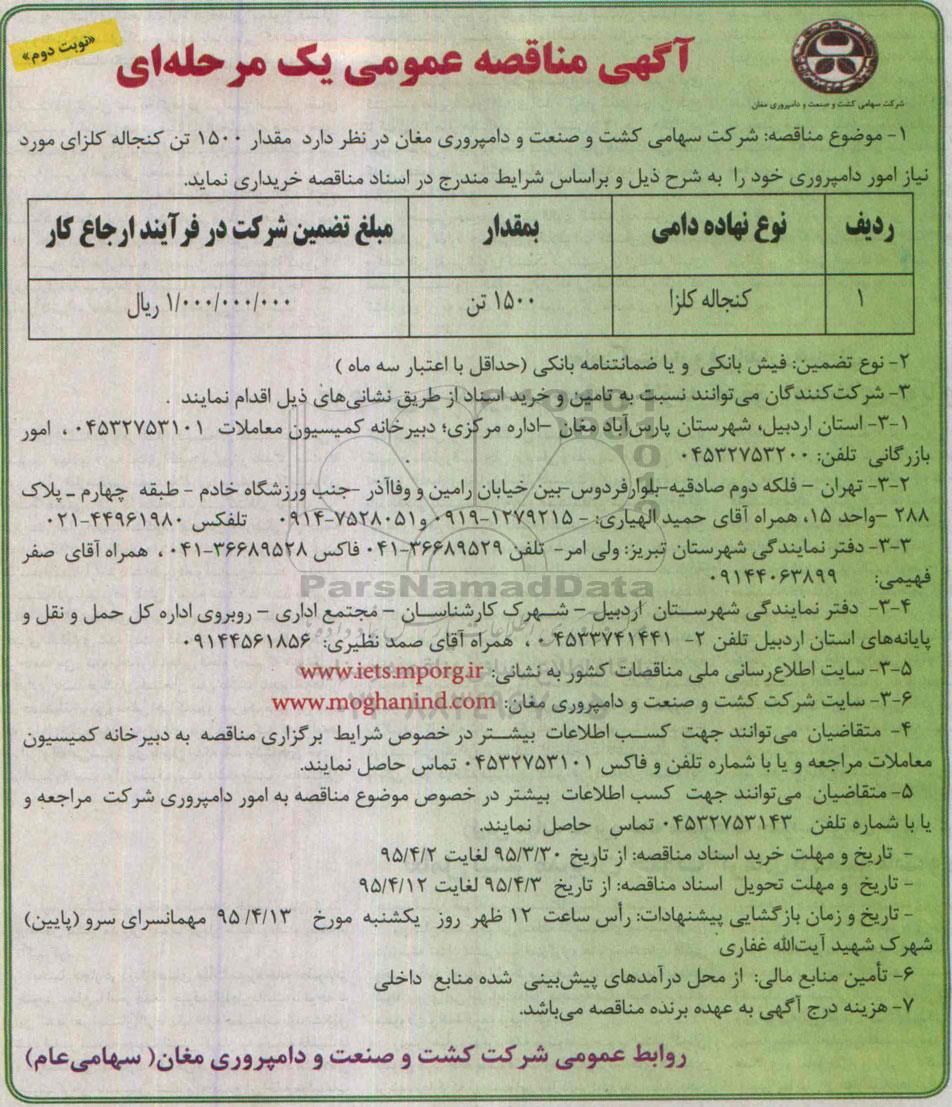 «نوبت دوم»
آگهی مناقصه عمومی یک مرحله‌ای
شرکت سهامی کشت و صنعت و دامپروری مغان
۱- موضوع مناقصه: شرکت سهامی کشت و صنعت و دامپروری مغان در نظر دارد مقدار ۱۵۰۰ تن کنجاله کلزای مورد
نیاز امور دامپروری خود را به شرح ذیل و براساس شرایط مندرج در اسناد مناقصه خریداری نماید.
ردیف نوع نهاده دامی بمقدار مبلغ تضمین شرکت در فرآیند ارجاع کار
۱ کنجاله کلزا ۱۵۰۰ تن ۱/۰۰۰/۰۰۰/۰۰۰ ریال
۲- نوع تضمین: فیش بانکی و یا ضمانتنامه بانکی (حداقل با اعتبار سه ماه )
۳- شرکت‌کنندگان می‌توانند نسبت به تامین و خرید اسناد از طریق نشانی‌های ذیل اقدام نمایند .
۳-۱- استان اردبیل، شهرستان پارس‌آباد مغان –اداره مرکزی؛ دبیرخانه کمیسیون معاملات ۰۴۵۳۲۷۵۳۱۰۱ ، امور
بازرگانی تلفن: ۰۴۵۳۲۷۵۳۲۰۰
۳-۲- تهران – فلکه دوم صادقیه-بلوارفردوس-بین خیابان رامین و وفاآذر -جنب ورزشگاه خادم - طبقه چهارم ـ پلاک
۲۸۸ –واحد ۱۵، همراه آقای حمید الهیاری: - ۱۲۷۹۲۱۵-۰۹۱۹ و۷۵۲۸۰۵۱-۰۹۱۴ تلفکس ۴۴۹۶۱۹۸۰-۰۲۱
۳-۳- دفتر نمایندگی شهرستان تبریز: ولی امر- تلفن ۳۶۶۸۹۵۲۹-۰۴۱ فاکس ۳۶۶۸۹۵۲۸-۰۴۱ ، همراه آقای صفر
فهیمی: ۰۹۱۴۴۰۶۳۸۹۹
ParsNamadData
۳-۴- دفتر نمایندگی شهرستان اردبیل – شهرک کارشناسان – مجتمع اداری – روبروی اداره کل حمل و نقل و
پایانه‌های استان اردبیل تلفن ۲- ۰۴۵۳۳۷۴۱۴۴۱ ، همراه آقای صمد نظیری: ۰۹۱۴۴۵۶۱۸۵۶
۳-۵- سایت اطلاع‌رسانی ملی مناقصات کشور به نشانی: www.iets.mporg.ir
۳-۶- سایت شرکت کشت و صنعت و دامپروری مغان: www.moghanind.com
۴- متقاضیان می‌توانند جهت کسب اطلاعات بیشتر در خصوص شرایط برگزاری مناقصه به دبیرخانه کمیسیون
معاملات مراجعه و یا با شماره تلفن و فاکس ۰۴۵۳۲۷۵۳۱۰۱ تماس حاصل نمایند.
۵- متقاضیان می‌توانند جهت کسب اطلاعات بیشتر در خصوص موضوع مناقصه به امور دامپروری شرکت مراجعه و
یا با شماره تلفن ۰۴۵۳۲۷۵۳۱۴۳ تماس حاصل نمایند.
- تاریخ و مهلت خرید اسناد مناقصه: از تاریخ ۹۵/۳/۳۰ لغایت ۹۵/۴/۲
- تاریخ و مهلت تحویل اسناد مناقصه: از تاریخ ۹۵/۴/۳ لغایت ۹۵/۴/۱۲
- تاریخ و زمان بازگشایی پیشنهادات: رأس ساعت ۱۲ ظهر روز یکشنبه مورخ ۹۵/۴/۱۳ مهمانسرای سرو (پایین)
شهرک شهید آیت‌الله غفاری
۶- تأمین منابع مالی: از محل درآمدهای پیش‌بینی شده منابع داخلی
۷- هزینه درج آگهی به عهده برنده مناقصه می‌باشد.
روابط عمومی شرکت کشت و صنعت و دامپروری مغان( سهامی‌عام)